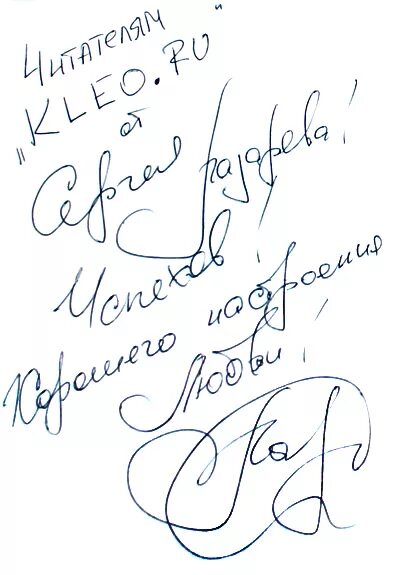 Читателям
"KLEO.RU"
от
Сергея Лазарева!
Успехов!
Хорошего настроения
Любви!